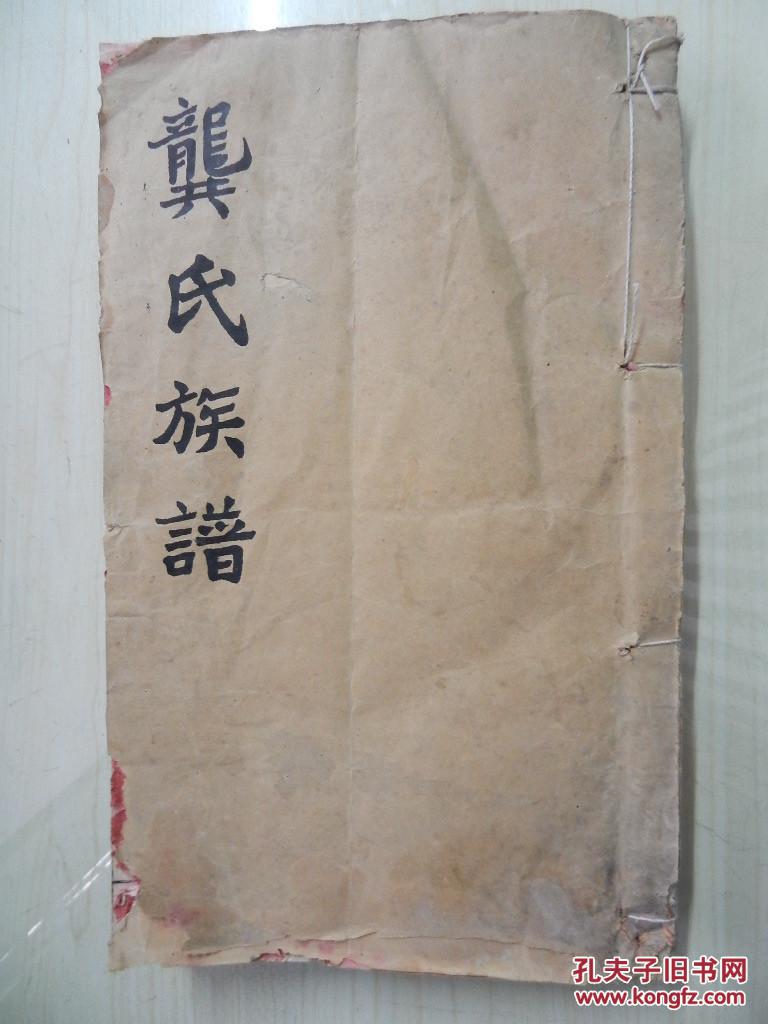 龔氏族譜
孔夫子旧书网
www.kongfz.com